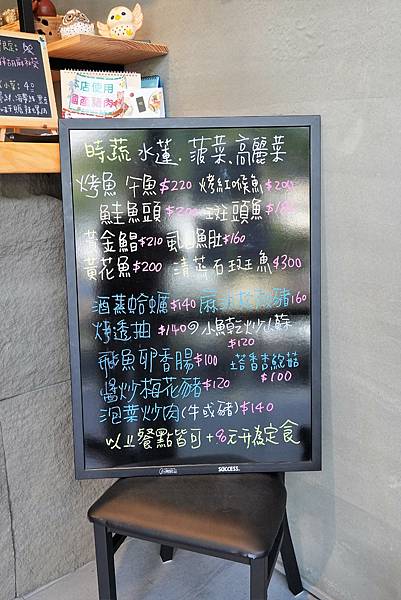 本店使用
國產豬肉
時蔬 水蓮.菠菜.高麗菜
烤魚 午魚$220 烤紅喉魚$200
鮭魚頭$200 斑頭魚
黃金鯧$210 虱目魚肚$160
黃花魚$200 清蒸石斑魚$300
酒蒸蛤蠣$140 豬160
烤透抽 $140 小魚乾炒山蘇
$120
飛魚卵香腸$100 塔香杏鮑菇
$100
醬炒梅花豬$120
泡菜炒肉(牛或豬)$140
以上餐點皆可+90元升為定食
SUCCESS.